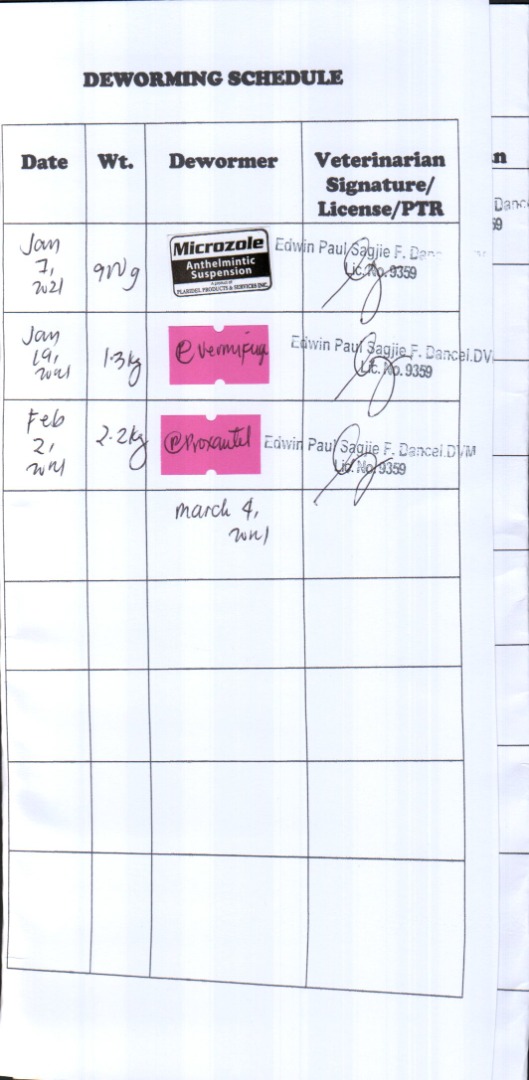 DEWORMING SCHEDULE
Date Wt. Dewormer Veterinarian Signature/ License/PTR
Jan 7, 2021 900g
Microzole
Anthelmintic
Suspension
A product of
PLARIDEL PRODUCTS & SERVICES INC.
Edwin Paul Sagjie F. Danc
Lic. No. 9359
Jan 19, 2021 1.3kg
Vermifuga
Edwin Paul Sagjie F. Dancel.DV
Lic. No. 9359
Feb 2, 2021 2.2kg
Proxantel
Edwin Paul Sagjie F. Dancel.DVM
Lic. No. 9359
march 4,
2021
n
Danc
59